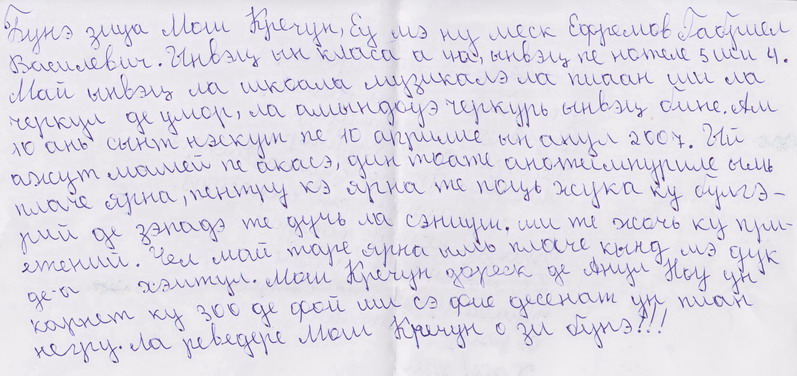 Бунэ зиуа Мош Кречун, Еу мэ ну меск Ефремов Габриел
Василевич. Ынвэц ын класа а на, ынвэц пе нотеле 5 ши 4.
Май ынвэц ла шкоала музикалэ ла пиаан ши ла
черкул де умор, ла амындоуэ черкурь ынвэц бине. Ам
10 ань сынт нэскут пе 10 априлие ын анул 2007. Ый
ажут мамей пе акасэ, дин тоате анотимпуриле ымь
плаче ярна, пентру кэ ярна те поць жука ку булгэ-
рий де зэпадэ те дучь ла сэниуш. ши те жочь ку при-
етений. Чел май таре ярна ымь плаче кынд мэ дук
де-а хэитул. Мош Кречун дореск де Анул Ноу ун
карнет ку 300 де фой ши сэ фие десенат ун пиан
негру. Ла реведере Мош Кречун о зи бунэ!!!